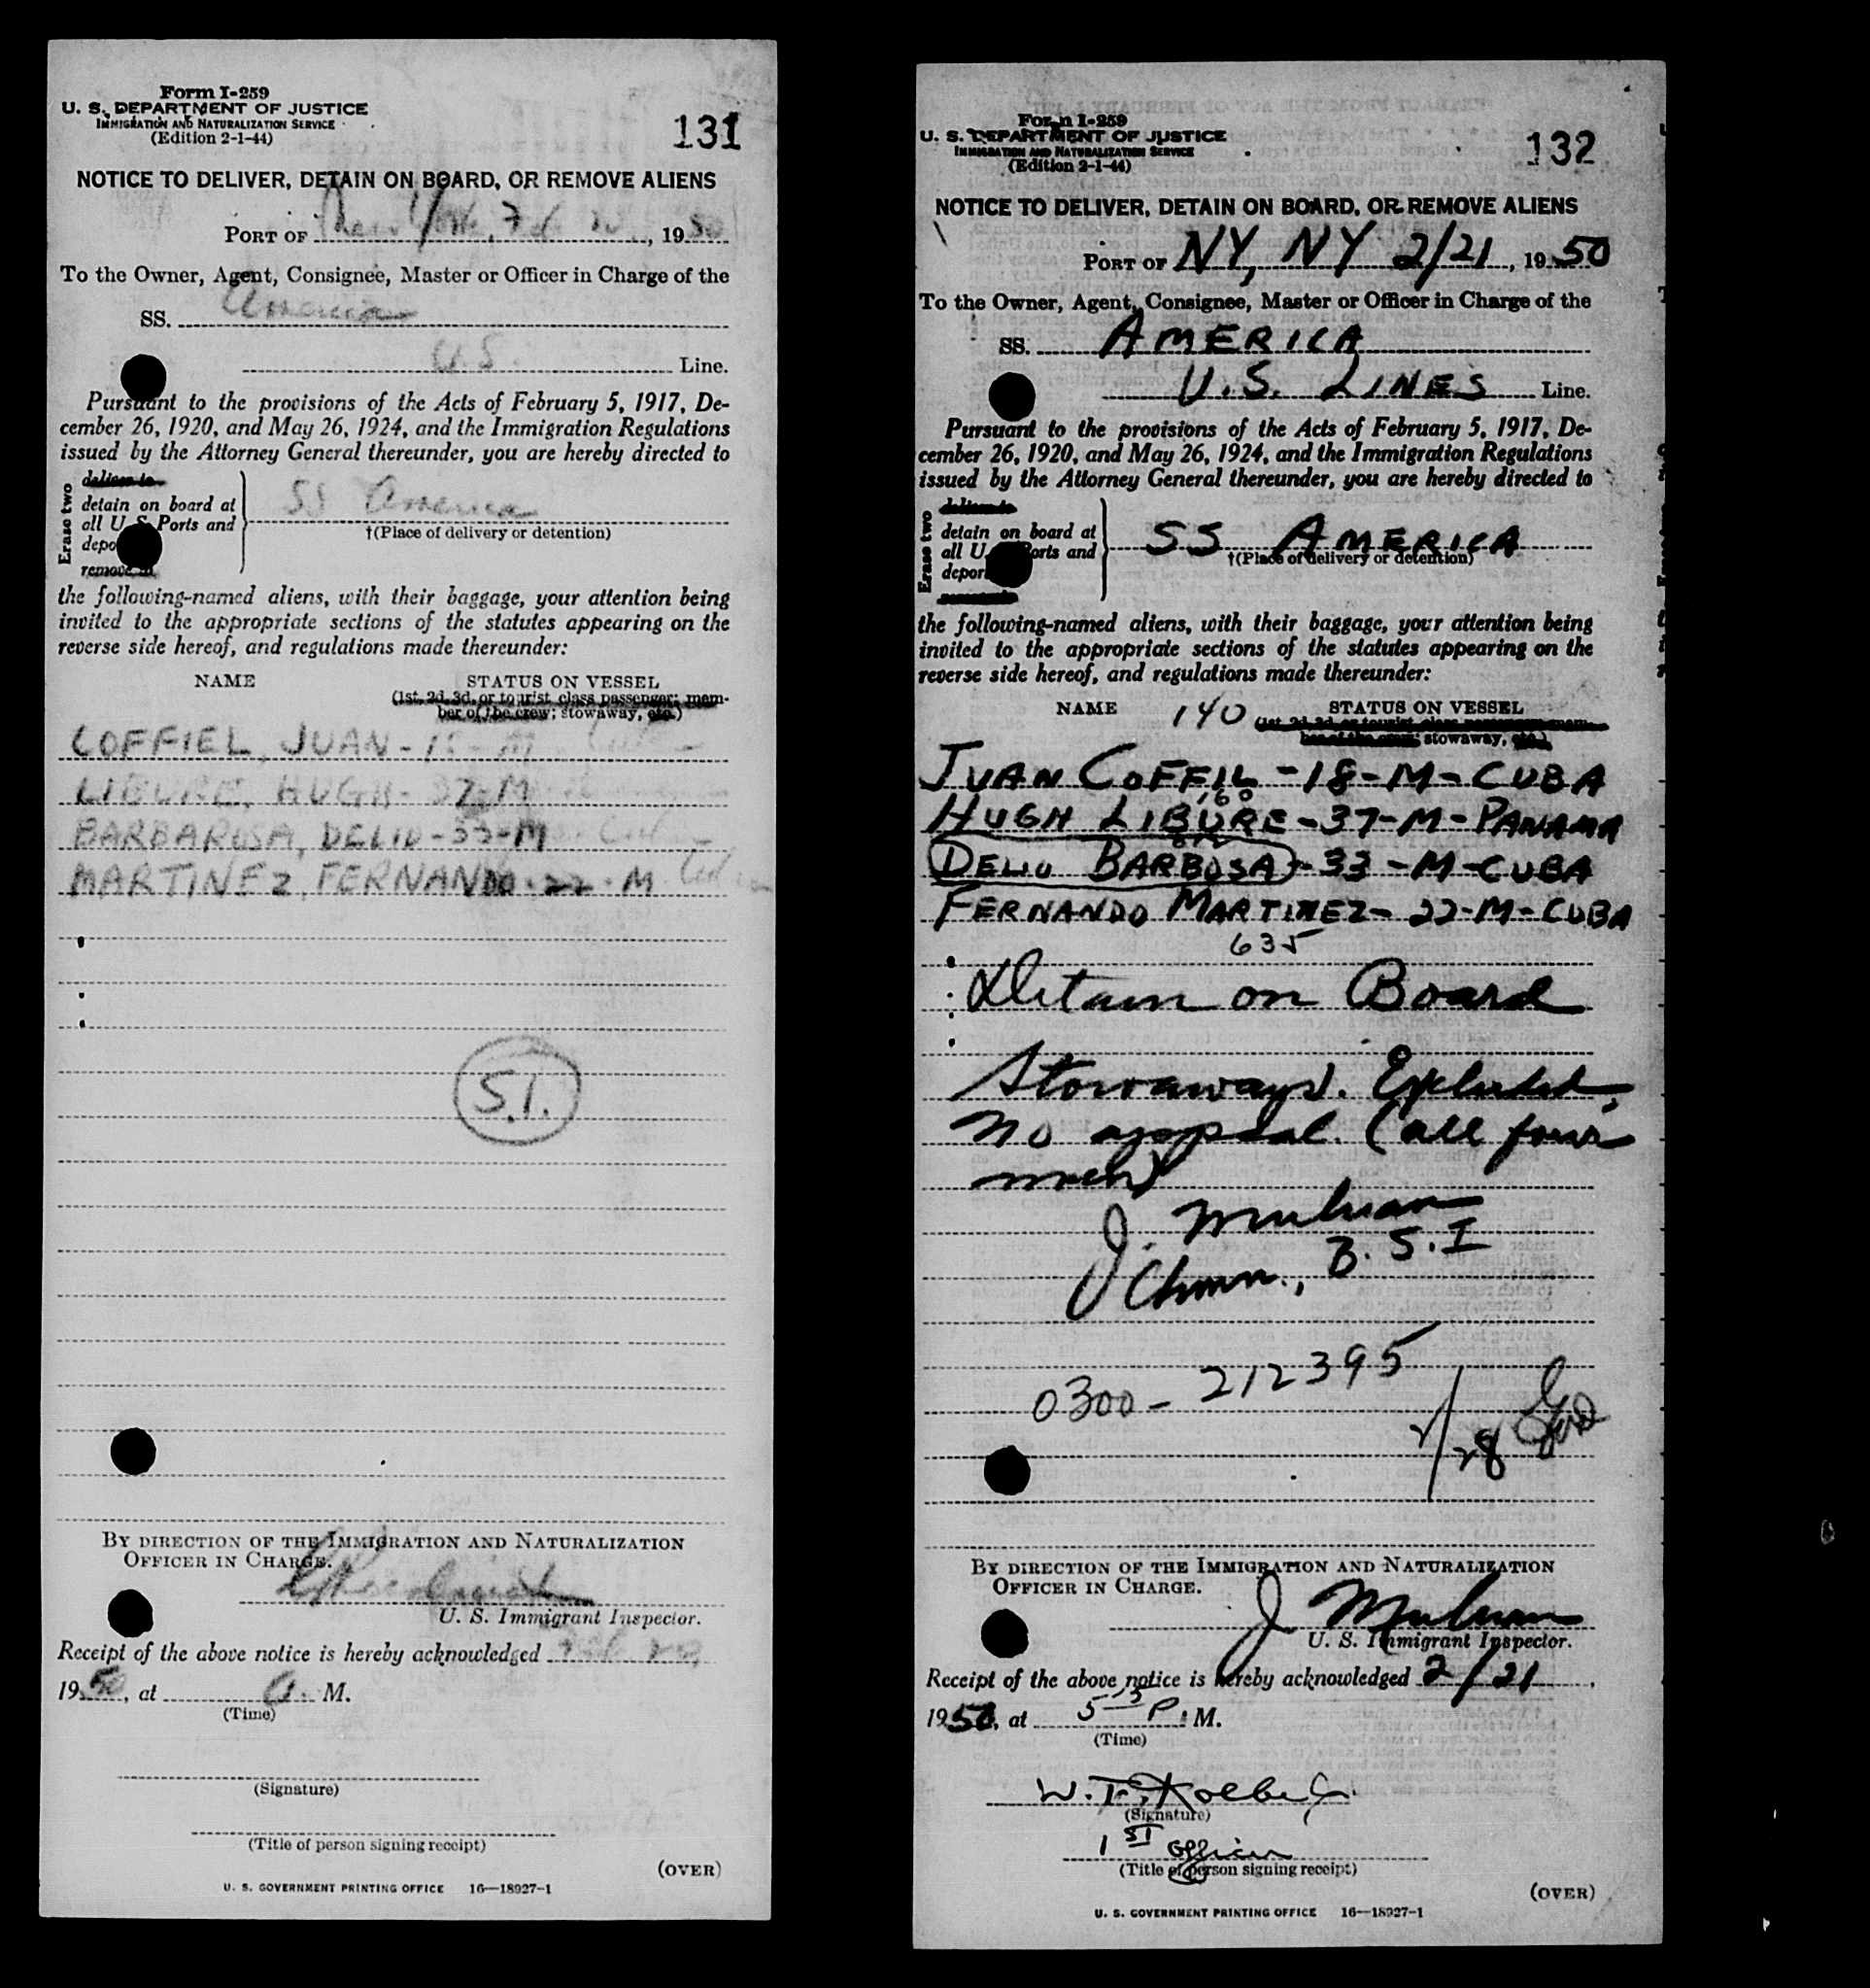 Form I-259
U. S. DEPARTMENT OF JUSTICE
IMMIGRATION AND NATURALIZATION SERVICE
(Edition 2-1-44)
131
NOTICE TO DELIVER, DETAIN ON BOARD, OR REMOVE ALIENS
PORT OF New York, , 1950
To the Owner, Agent, Consignee, Master or Officer in Charge of the
SS. America
U.S. Line.
Pursuant to the provisions of the Acts of February 5, 1917, De-
cember 26, 1920, and May 26, 1924, and the Immigration Regulations
issued by the Attorney General thereunder, you are hereby directed to
Erase two
deliver to
detain on board at
all U S Ports and
depo
remove to
SS America
†(Place of delivery or detention)
the following-named aliens, with their baggage, your attention being
invited to the appropriate sections of the statutes appearing on the
reverse side hereof, and regulations made thereunder:
NAME STATUS ON VESSEL
(1st, 2d, 3d, or tourist class passenger; mem-
ber of the crew; stowaway, etc.)
COFFIEL, JUAN - M
LIBURE, HUGH - 37-M
BARBAROSA, DELIO-33-M
MARTINEZ, FERNANDO-22-M
S.I.
BY DIRECTION OF THE IMMIGRATION AND NATURALIZATION
OFFICER IN CHARGE.
U. S. Immigrant Inspector.
Receipt of the above notice is hereby acknowledged
1950, at A. M.
(Time)
(Signature)
(Title of person signing receipt)
(OVER)
U. S. GOVERNMENT PRINTING OFFICE 16—18927-1
Form I-259
U. S. DEPARTMENT OF JUSTICE
IMMIGRATION AND NATURALIZATION SERVICE
(Edition 2-1-44)
132
NOTICE TO DELIVER, DETAIN ON BOARD, OR REMOVE ALIENS
PORT OF NY, NY 2/21, 1950
To the Owner, Agent, Consignee, Master or Officer in Charge of the
SS. AMERICA
U.S. LINES Line.
Pursuant to the provisions of the Acts of February 5, 1917, De-
cember 26, 1920, and May 26, 1924, and the Immigration Regulations
issued by the Attorney General thereunder, you are hereby directed to
Erase two
deliver to
detain on board at
all U. orts and
depor
SS AMERICA
†(Place of delivery or detention)
the following-named aliens, with their baggage, your attention being
invited to the appropriate sections of the statutes appearing on the
reverse side hereof, and regulations made thereunder:
NAME 140 STATUS ON VESSEL
stowaway, etc.)
JUAN COFFIL - 18 - M - CUBA
160
HUGH LIBURE - 37 - M - PANAMA
DELIO BARBOSA - 33 - M - CUBA
FERNANDO MARTINEZ - 22 - M - CUBA
635
Detain on Board
Stowaways. Excluded.
No appeal. (all four
men)
J. Mulvan
Chmn., B.S.I
0300-212395
2/28
BY DIRECTION OF THE IMMIGRATION AND NATURALIZATION
OFFICER IN CHARGE.
J Mulvan
U. S. Immigrant Inspector.
Receipt of the above notice is hereby acknowledged 2/21
1950, at 5 P. M.
(Time)
(Signature)
1ST officer
(Title of person signing receipt)
(OVER)
U. S. GOVERNMENT PRINTING OFFICE 16—18927-1